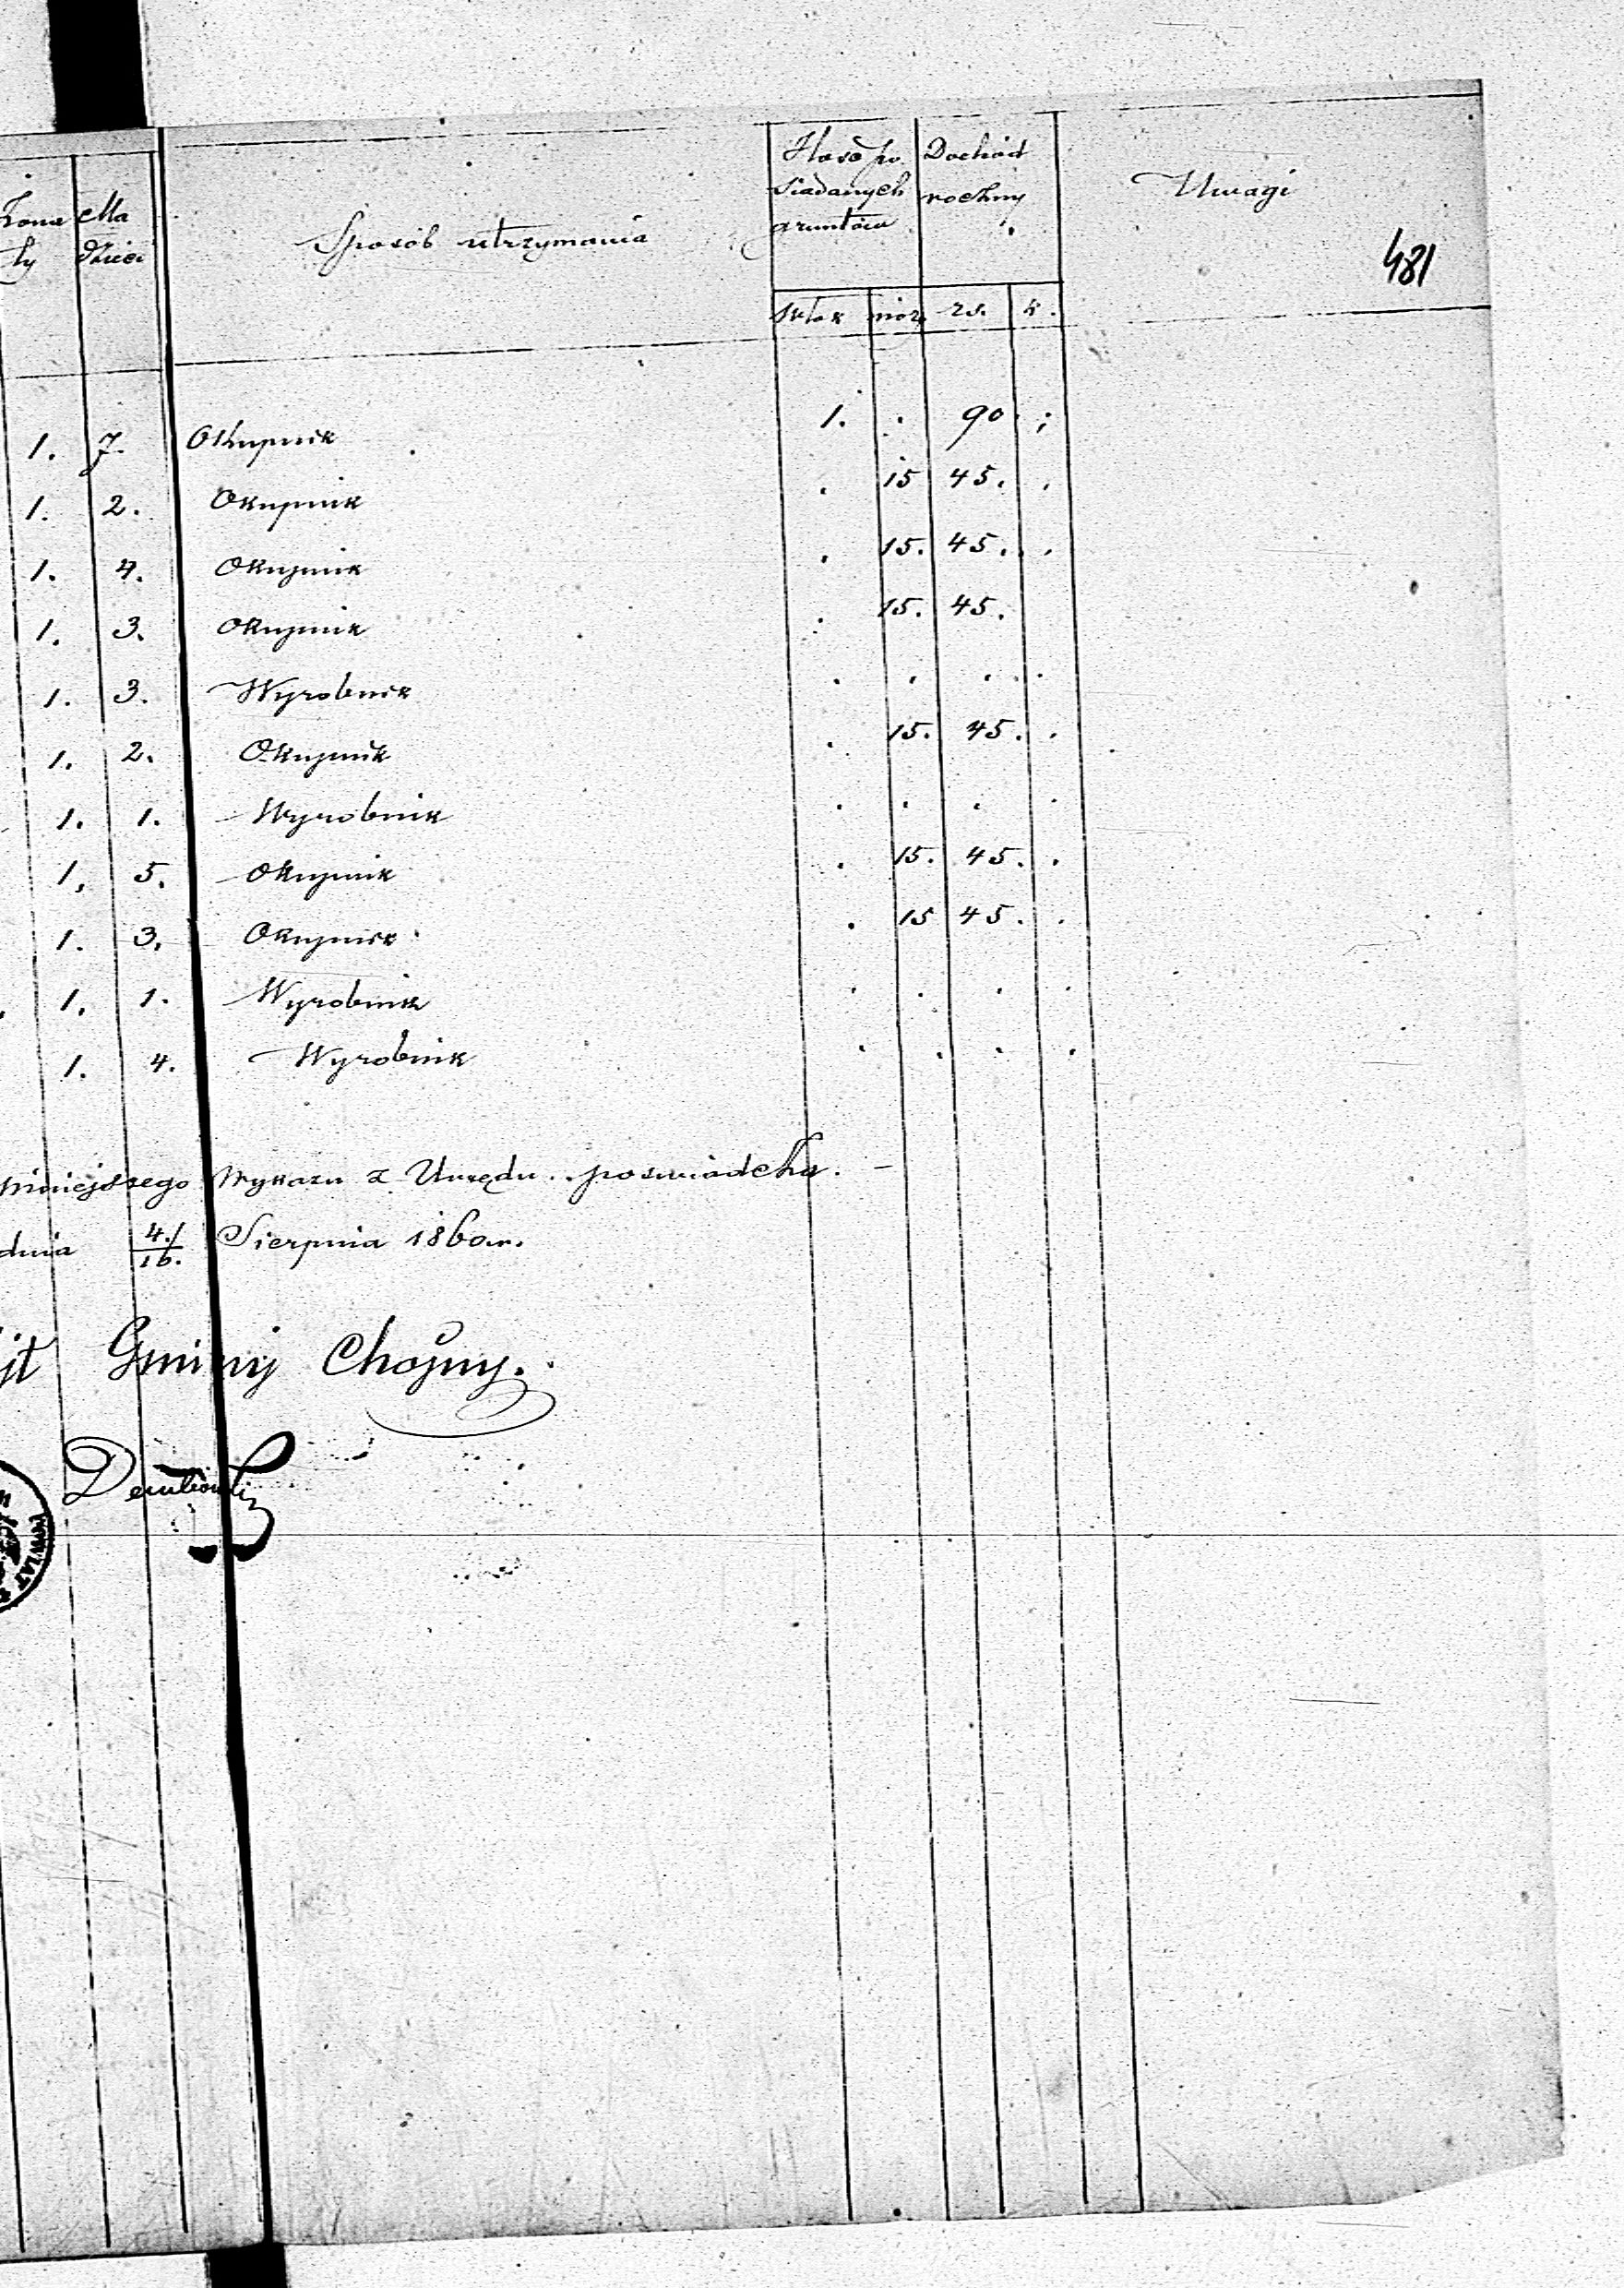 Żona Ma Sposób utrzymania Ilość po Dochód Uwagi
ty dzieci siadanych roczny
gruntów
481
włók mor. rs. k.
1. 7. Okupnik 1. . 90. .
1. 2. Okupnik . 15 45. .
1. 4. Okupnik . 15. 45. .
1. 3. Okupnik . 15. 45.
1. 3. Wyrobnik . . . .
1. 2. Okupnik . 15. 45. .
1. 1. Wyrobnik . . . .
1. 5. Okupnik . 15. 45. .
1. 3. Okupnik . 15 45. .
1. 1. Wyrobnik . . . .
1. 4. Wyrobnik . . . .
niniejszego Wykazu z Urzędu poswiadcza. –
dnia 4/16. Sierpnia 1860 r.
jt Gminy Chojny.
POWIAT